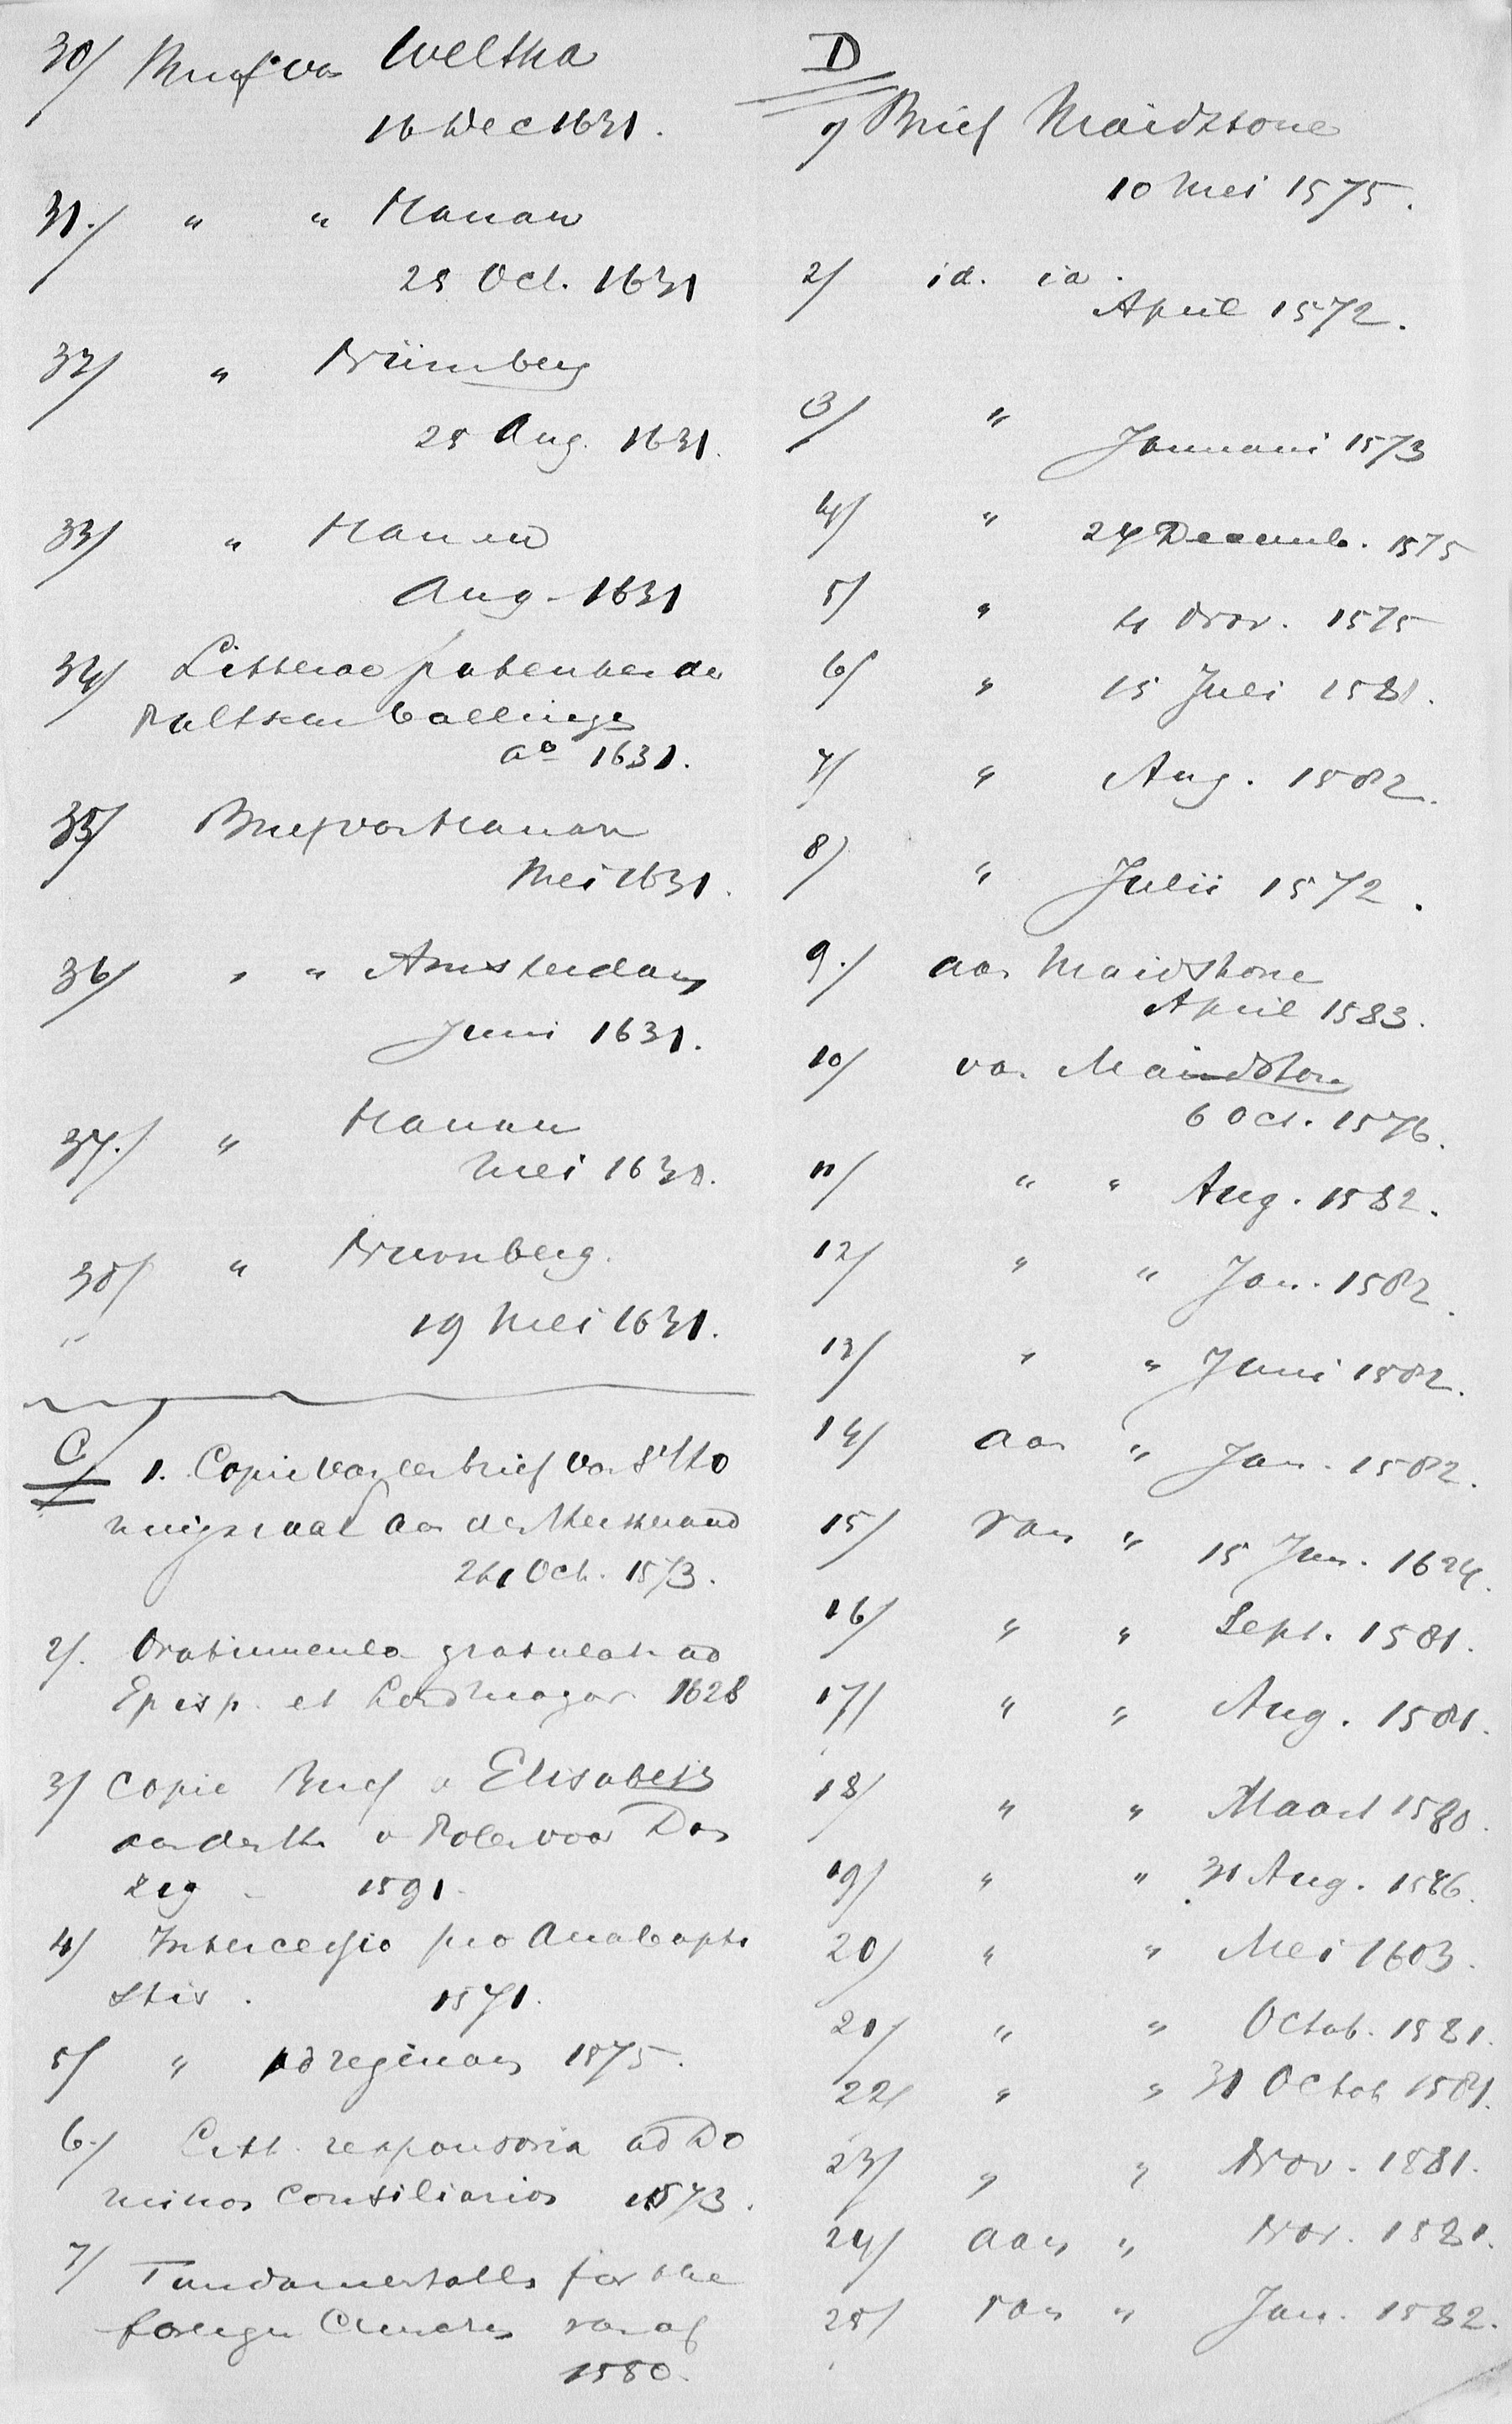 30/ Brief van Weltha
16 Dec 1631.
31./ " " Hanau
28 Oct. 1631
32/ " Nürnberg
28 Aug. 1631.
33/ " Hanau
Aug. 1631
34/ Litterae patentes de
Paltsen Collinge
ao 1631.
35/ Brief van Hanau
Mei 1631.
36/ " " Amsterdam
Juni 1631.
37./ " Hanau
Mei 1631.
38/ " Nurnberg.
19 Mei 1631.
C/ 1. Copie van den brief van
aan de
Oct. 1573.
2/. Oratiuncula gratulat. ad
Episp. et Lordmayor 1628
3/ Copie Brief v Elisabeth
aan den K. v Polen voor Dan
zig - 1591.
4/ Intercessio pro Anabapti
stis. 1571.
5/ " ad reginam 1575.
6./ Litt. responsoria ad Do
minos Consiliarios 1573.
7/ Fundamentalls for the
foreign Churches vanaf
1580.
D
1/ Brief Maidstone
10 Mei 1575.
2/ id. id.
April 1572.
3/ "
Januari 1573
4/ " 24 Decemb. 1575
5/ " 4 Nov. 1575
6/ " 15 Juli 1581.
7/ " Aug. 1582.
8/ " Julii 1572.
9./ aan Maidstone
April 1583.
10/ van Maidstone
6 Oct. 1576.
11/ " " Aug. 1582.
12/ " " Jan. 1582.
13/ " " Juni 1582.
14/ aan " Jan. 1582.
15/ van " 15 Jan. 1624.
16/ " " Sept. 1581.
17/ " " Aug. 1581.
18/ " " Maart 1580.
19/ " " 31 Aug. 1586.
20/ " " Mei 1603.
21/ " " Octob. 1581.
22/ " " 31 Octob 1581.
23/ " " Nov. 1581.
24/ aan " Nov. 1581.
25/ van " Jan. 1582.